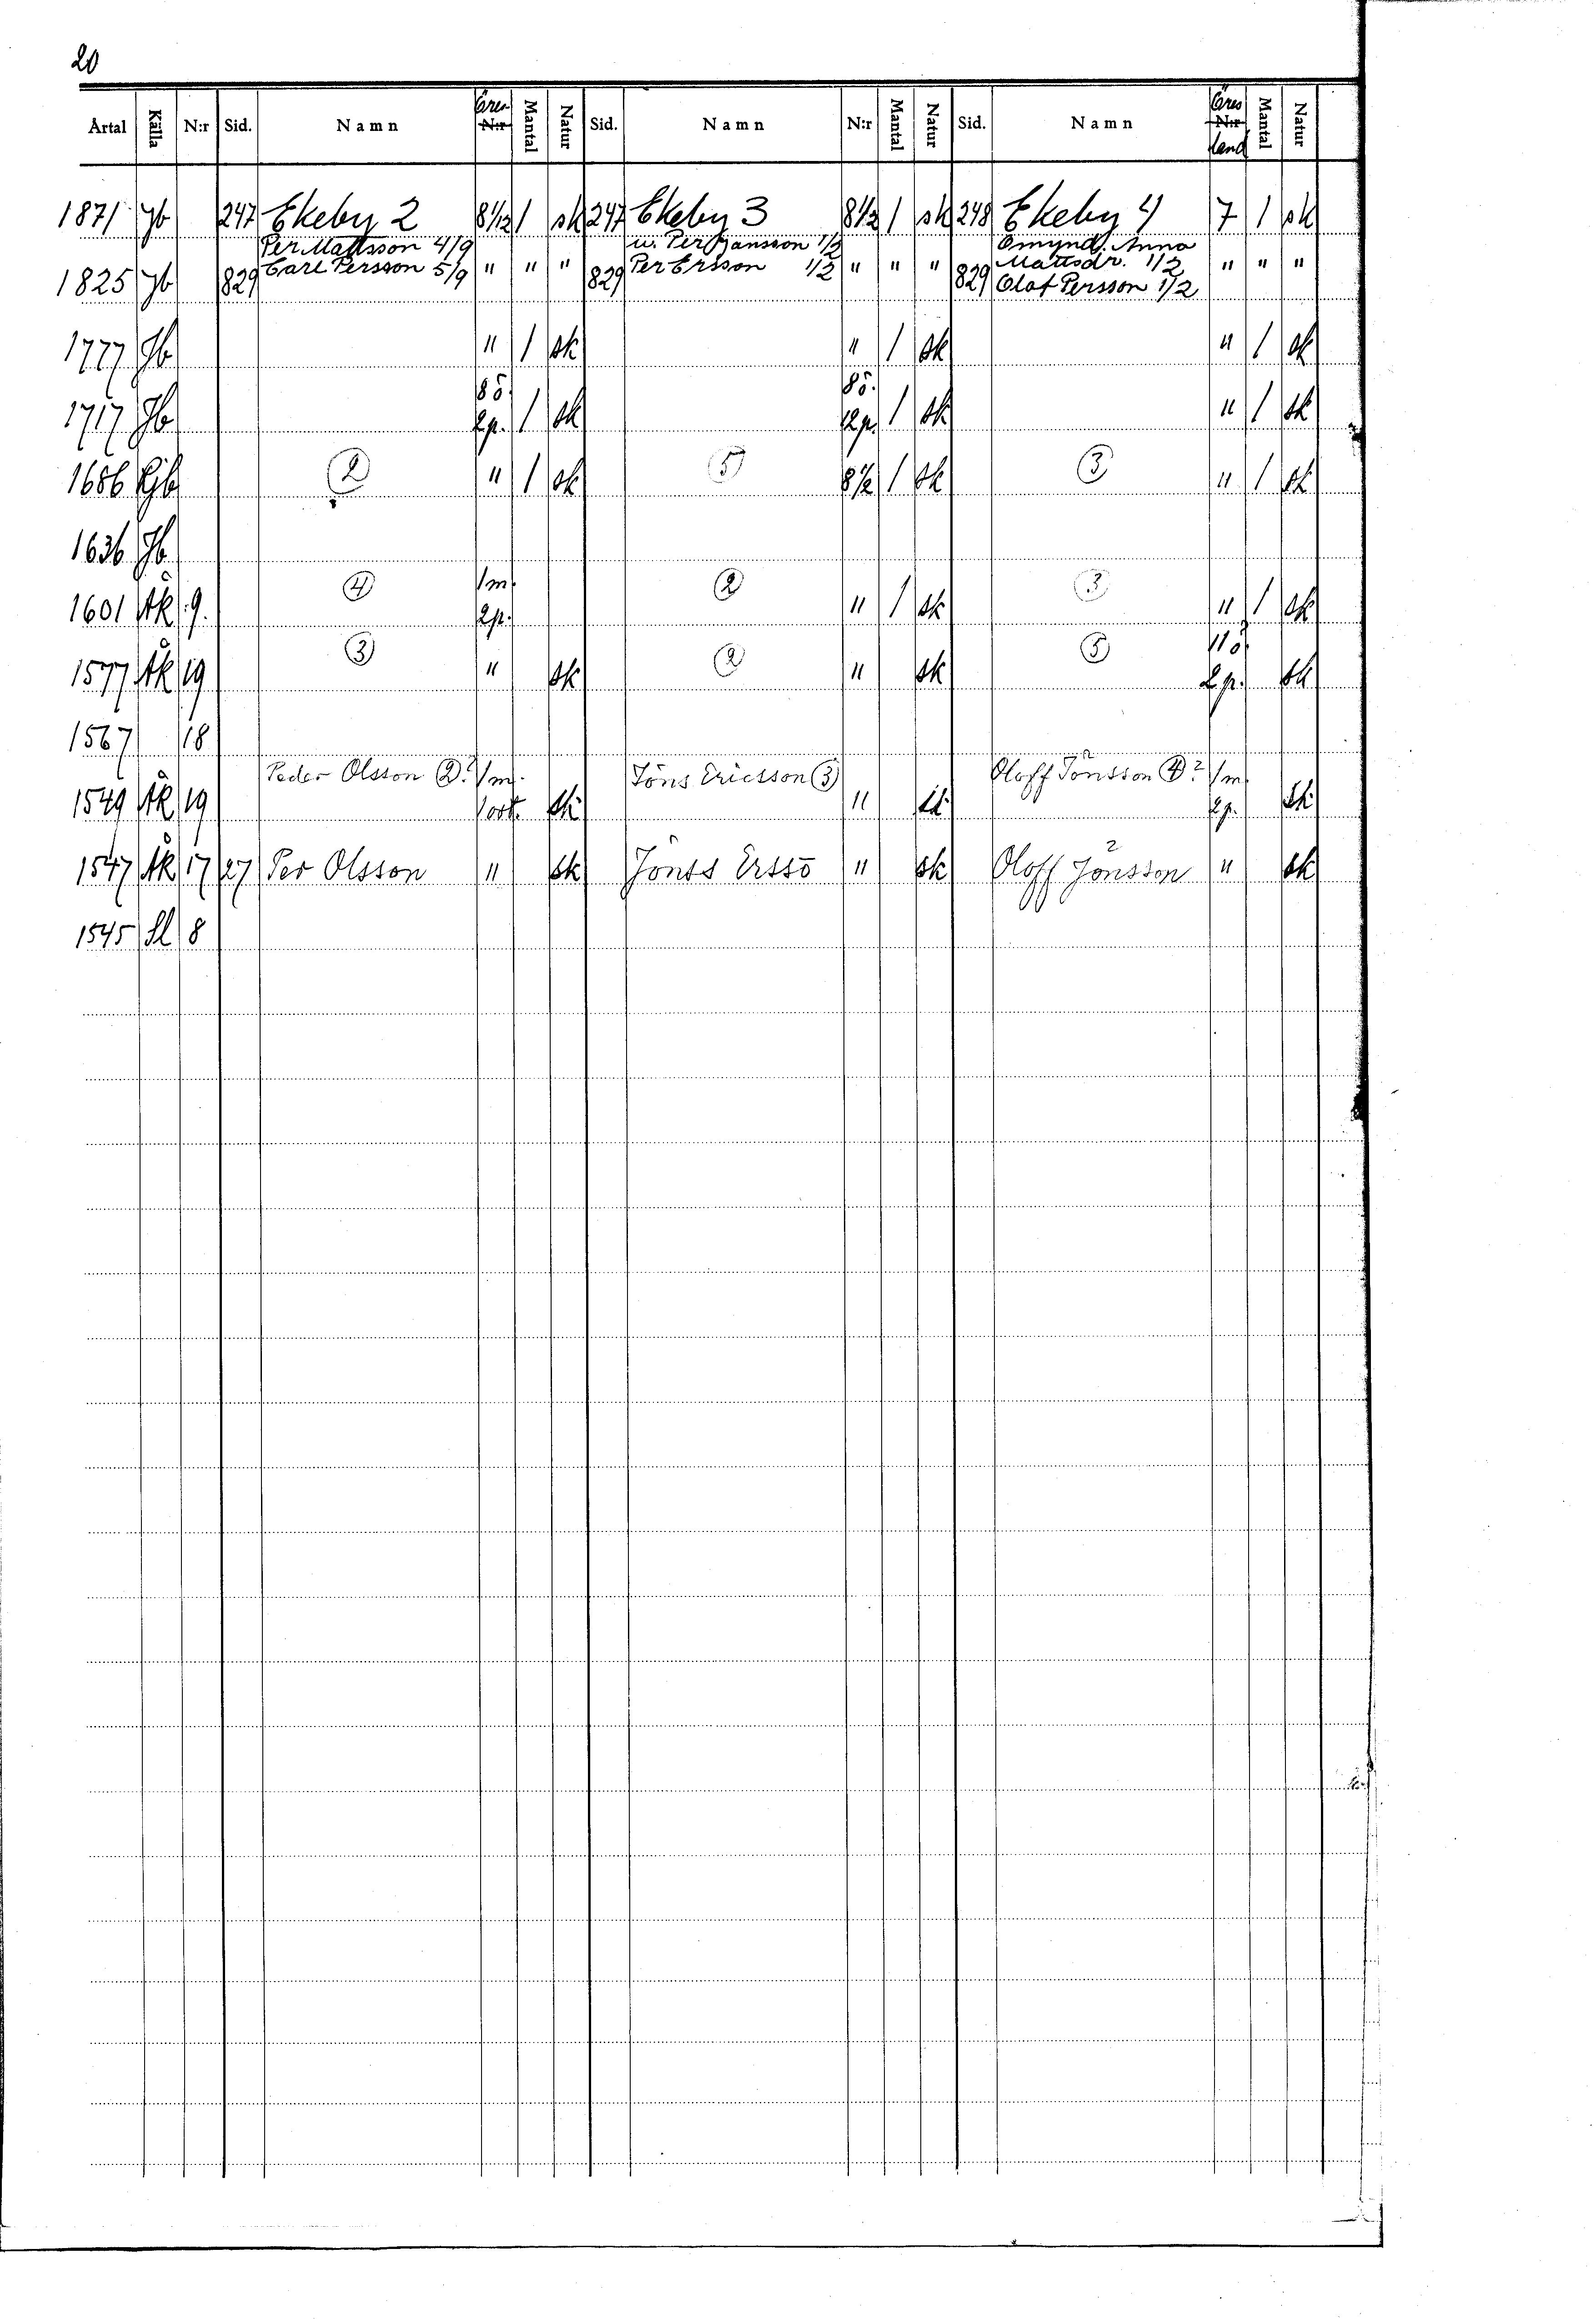 20
Årtal Källa N:r Sid. Namn Öres N:r Mantal Natur Sid. Namn N:r Mantal Natur Sid. Namn Öres N:r land Mantal Natur
1871 Jb 247 Ekeby 2 8 1/2 1 sk 247 Ekeby 3 8 1/2 1 sk 248 Ekeby 4 7 1 sk
Per Mattsson 4/9 u. Per Jansson 1/2 Omynd. Anna
1825 Jb 829 Carl Persson 5/9 " " " 829 Per Ersson 1/2 " " " 829 Mattsdr. 1/2 " " "
Olof Persson 1/2
1777 Jb " 1 sk " 1 sk " 1 sk
1717 Jb 8 ö. 2 p. 1 sk 8 ö. 2 p. 1 sk " 1 sk
1686 Jb 2 " 1 sk 5 8 1/2 1 sk 3 " 1 sk
1636 Jb
1601 Åk 9. 4 1 m. 2 p. 2 " 1 sk 3 " 1 sk
1577 Åk 19 3 " sk 2 " sk 5 2 p. sk
1567 18
1549 Åk 19 Peder Olsson 2? 1 m. 1 ort. sk Jöns Ericsson 3 " sk Oloff Jonsson 4? 1 m. 2 p. sk
1547 Åk 17 27 Per Olsson " sk Jönss Erssö " sk Oloff Jönsson " sk
1545 Sl 8